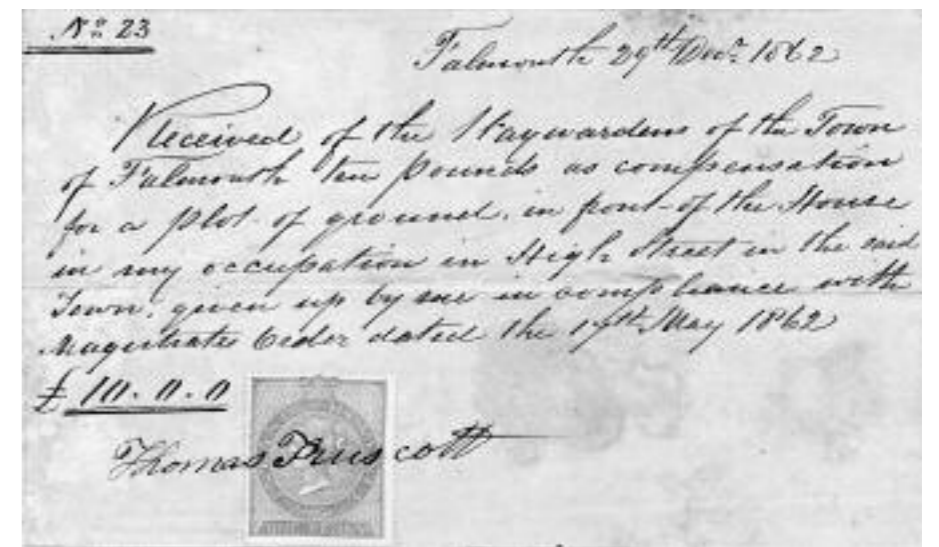 No 23
Falmouth 29th Decr 1862
Received of the Waywardens of the Town
of Falmouth ten pounds as compensation
for a plot of ground, in front of the House
in my occupation in High Street in the said
Town, given up by me in compliance with
Magistrates Order dated the 17th May 1862
£ 10. 0. 0
Thomas Truscott